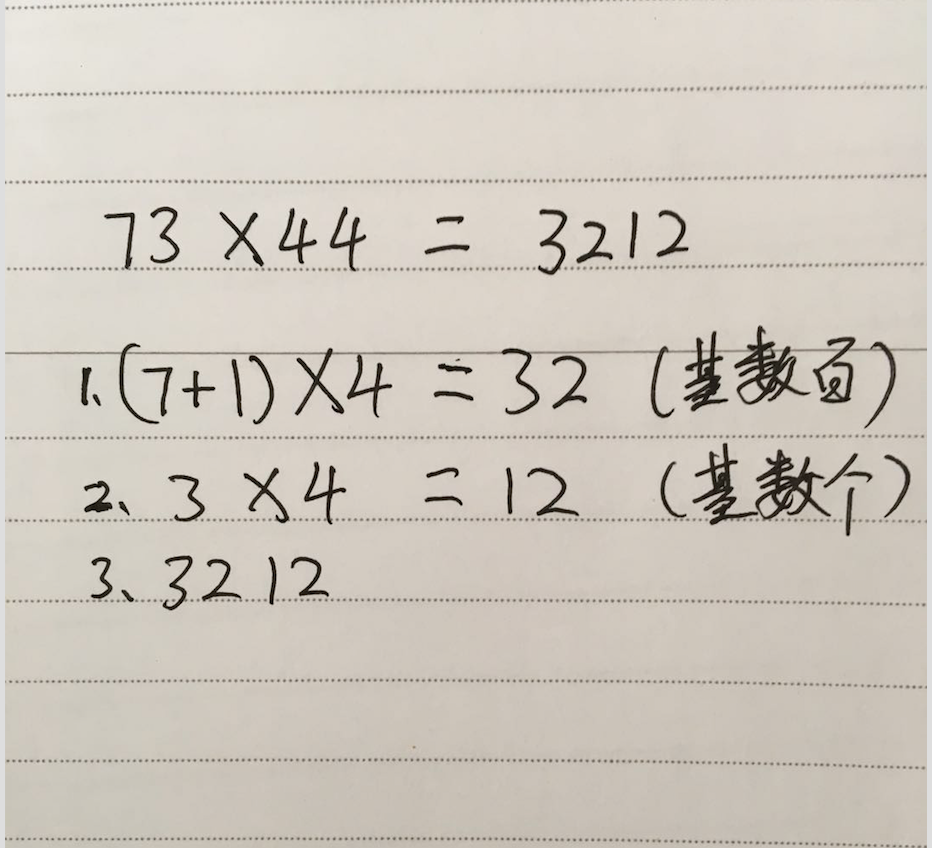 73×44 = 3212
1.(7+1)×4 = 32 (基数百)
2、3×4 = 12 (基数个)
3、3212